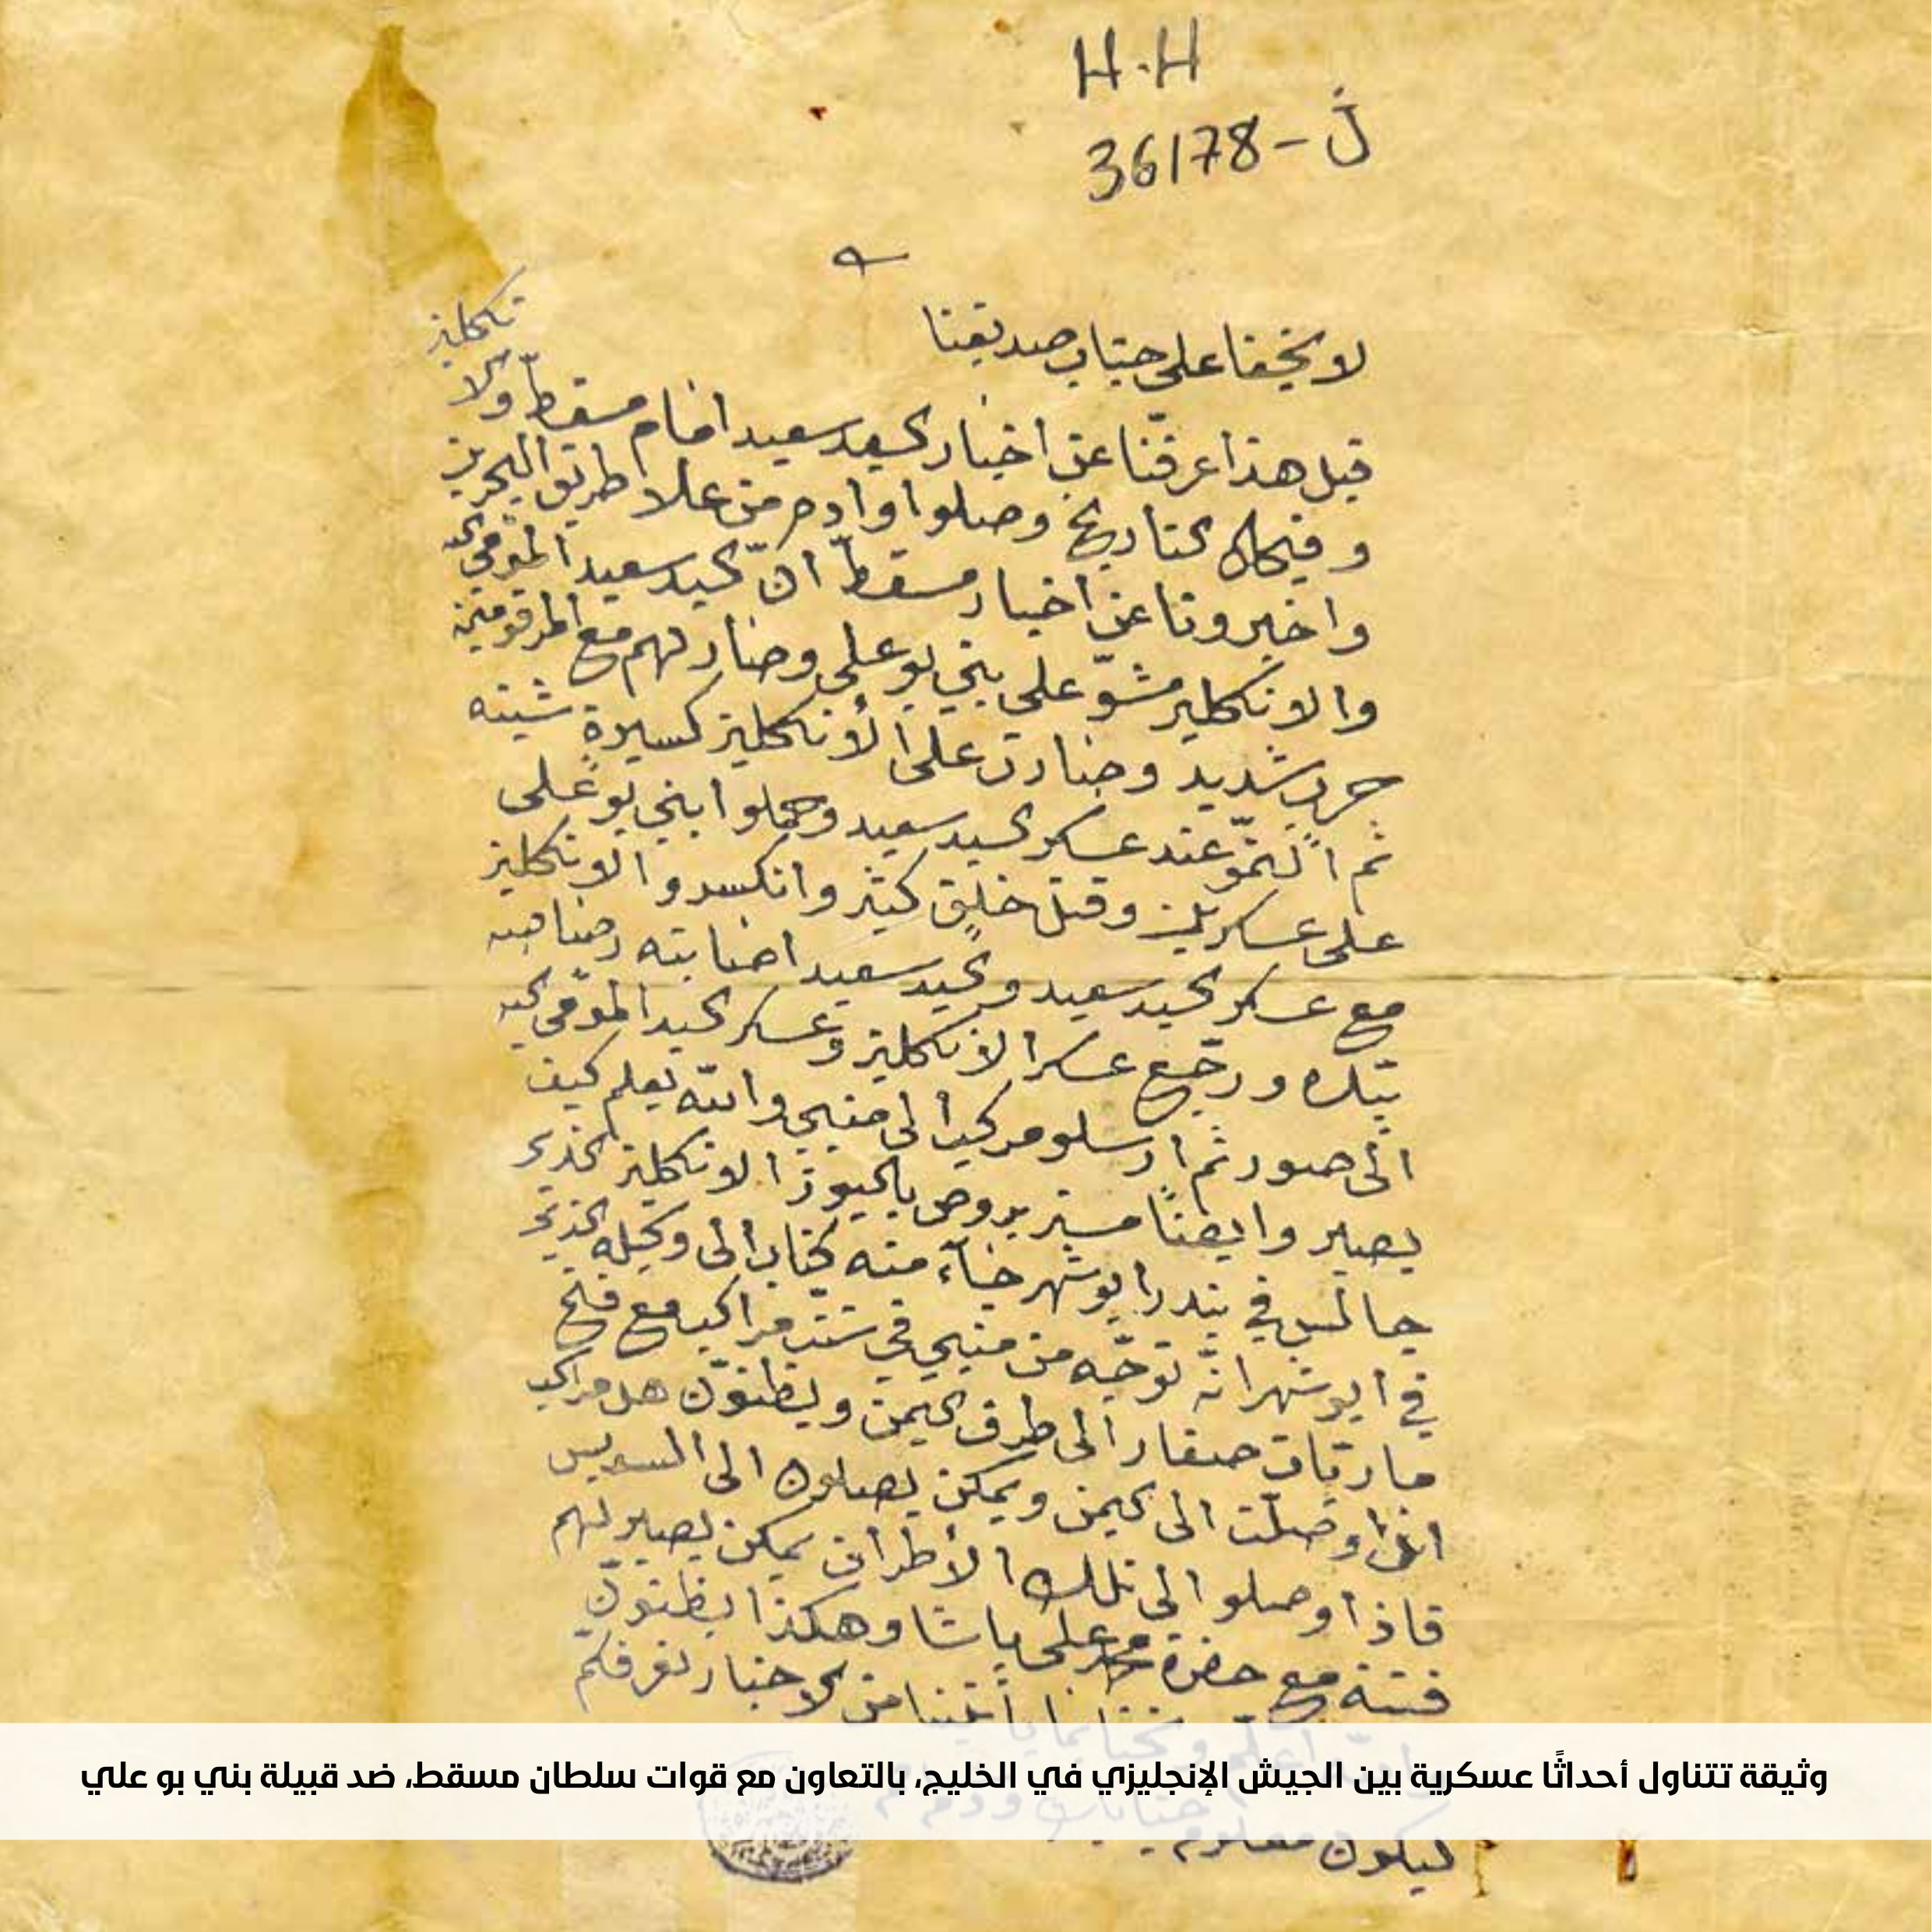 H.H
36178-ن
لا يخفا على جناب صديقنا
قبل هذا عرفنا عن اخبار السيد سعيد امام مسقط والا
نكليز
وفيحال التاريخ وصلوا اوادم من علا طريق البحرين
واخبرونا عن اخبار مسقط ان السيد سعيد المومى اليه
والانكليز مشوّ على بني بو علي وصار لهم مع المرقومين
حرب شديد وصارت على الانكليز كسيرة شينه
ثم التمّو عند عسكر السيد سعيد وحملوا بني بو على
على عسكرين وقتل خلق كثير وانكسروا الانكليز
مع عسكر السيد سعيد والسيد سعيد اصابته رصاصه
بيده ورجع عسكر الانكليز وعسكر السيد المومى اليه
الى صور ثم ارسلو مركب الى منبي والله يعلم كيف
يصير وايضاً مستر بروص باليوز الانكليز الذي
جالس في بندر ابو شهر جاء منه كتاب الى وكيله الذي
في ابو شهر انه توجّه من منبي في ستت مراكب مع فتح
ماريات صغار الى طرف اليمن ويظنوّن هل مراكب
اذا وصلت الى اليمن ويمكن يصلون الى السويس
فاذا وصلو الى تلك الأطراف يمكن يصير لهم
فتنة مع حضرة محمد علي باشا وهكذا يظنوّن
من الاخبار نعرفكم
وثيقة تتناول أحداثًا عسكرية بين الجيش الإنجليزي في الخليج، بالتعاون مع قوات سلطان مسقط، ضد قبيلة بني بو علي
ليكون معلوم